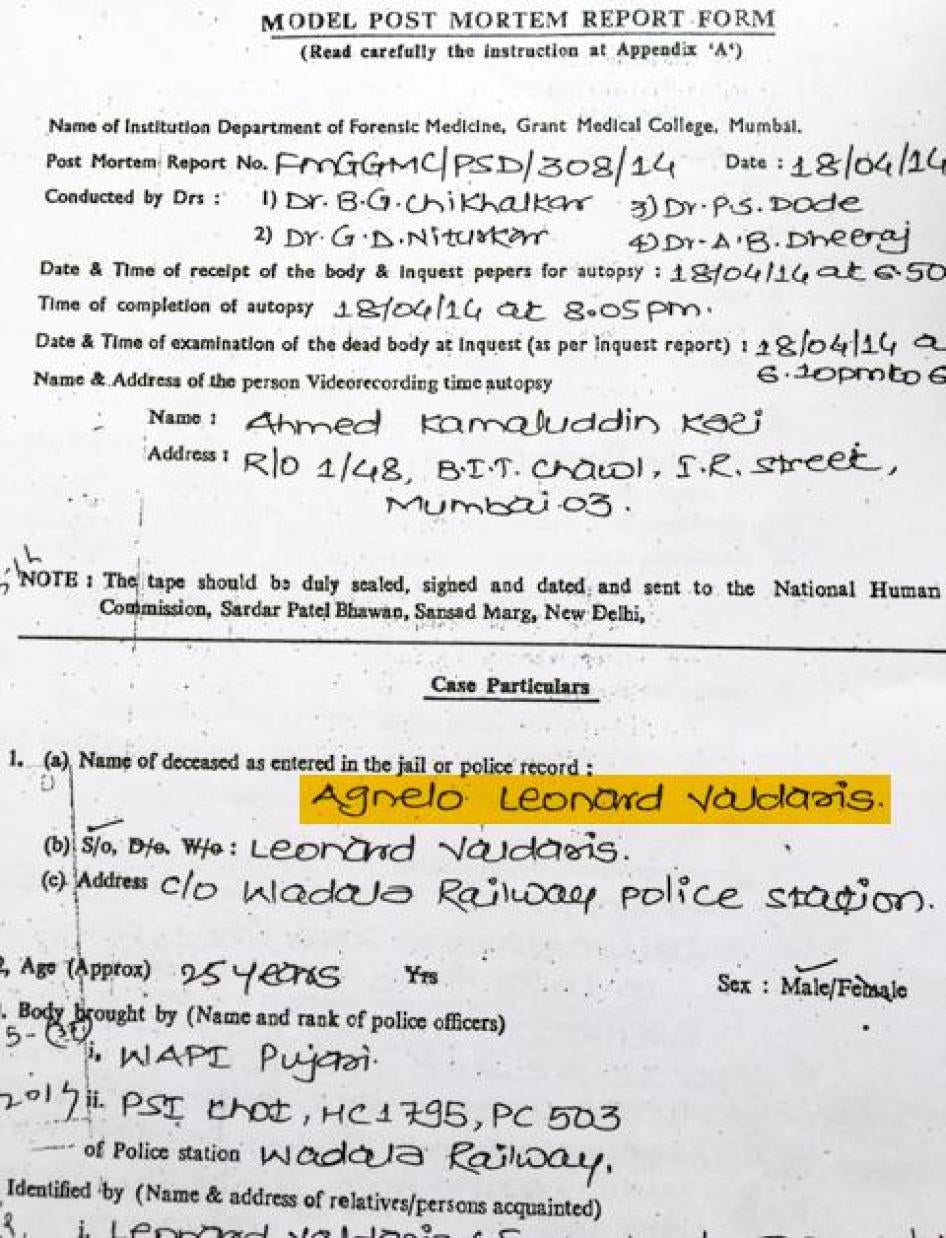 MODEL POST MORTEM REPORT FORM
(Read carefully the instruction at Appendix 'A')
Name of Institution Department of Forensic Medicine, Grant Medical College, Mumbai.
Post Mortem Report No. FMGGMC/PSD/308/14 Date : 18/04/14
Conducted by Drs : 1) Dr. B.G. Chikhalkar 3) Dr. P.S. Dode
2) Dr. G.D. Niturkar 4) Dr. A.B. Dheeraj
Date & Time of receipt of the body & inquest pepers for autopsy : 18/04/14 at 6.50
Time of completion of autopsy 18/04/14 at 8.05 pm.
Date & Time of examination of the dead body at inquest (as per inquest report) : 18/04/14 a
6.10pm to 6
Name & Address of the person Videorecording time autopsy
Name : Ahmed Kamaluddin Kazi
Address : R/o 1/48, B.I.T. Chawl, I.R. Street,
Mumbai 03.
NOTE : The tape should be duly sealed, signed and dated and sent to the National Human
Commission, Sardar Patel Bhawan, Sansad Marg, New Delhi,
Case Particulars
1. (a) Name of deceased as entered in the jail or police record :
Agnelo Leonard Valdaris.
(b) S/o, D/o. W/o : Leonard Valdaris.
(c) Address c/o Wadala Railway police station.
2, Age (Approx) 25 years Yrs Sex : Male/Female
. Body brought by (Name and rank of police officers)
i. WAPI Pujari.
ii. PSI Khot, HC 1795, PC 503
of Police station Wadala Railway.
Identified by (Name & address of relatives/persons acquainted)
i. Leonard Valdaris